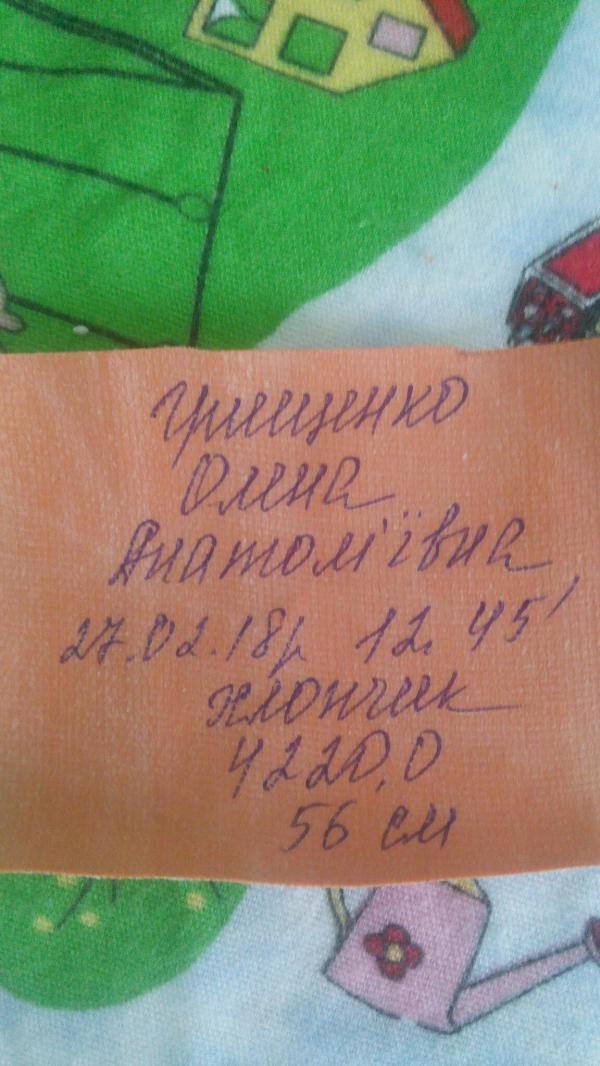 Грищенко
Олена
Анатоліївна
27.02.18р 12г 45'
хлопчик
4220,0
56 см